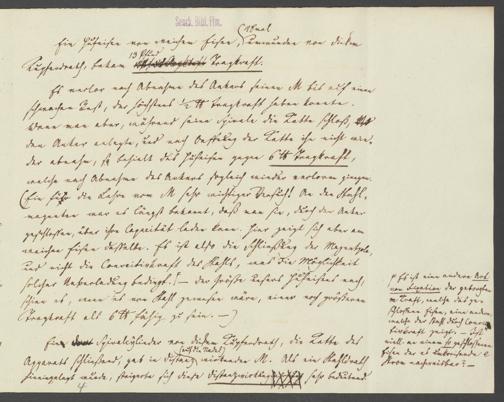 Senck. Bibl. Ffm.
Ein Hufeisen von weichem Eisen, (18 mal umwunden von dickem
Kupferdrath, bekam 13 Pfund Tragkraft.
Es verlor nach Abnahme des Ankers seinen M bis auf einen
schwachen Rest, der höchstens ½ ℔ Tragkraft haben konnte.
Wenn man aber, während seine Spirale die Kette schloß,
den Anker anlegte, und nach Oeffnung der Kette ihn nicht wie-
der abnahm, so behielt das Hufeisen gegen 6 ℔ Tragkraft,
welche nach Abnahme des Ankers sogleich wieder verloren gingen.
(Ein für die Lehre vom M sehr wichtiger Versuch! An den Stahl-
magneten war es längst bekannt, daß man sie, durch den Anker
geschlossen, über ihre Capacität laden kann. Hier zeigt sich aber am
weichen Eisen dasselbe. Es ist also die Schließung des Magnetpols,
und nicht die Coercitivkraft des Stahls, was die Möglichkeit
solcher Ueberladung bedingt! – der Größe unsers Hufeisens nach,
schien es, wenn es von Stahl gewesen wäre, einer noch größeren
Tragkraft als 6 ℔ fähig zu sein. –)
Ein Spiralcylinder von dickem Kupferdrath, die Kette des
Apparats schließend, gab in Distanz (auf die Nadel) wirkenden M. Als ein Stahldrath
hineingelegt wurde, steigerte sich diese Distanzwirkung sehr bedeutend
Es ist eine andere Art
von Fixation der gebroche-
welche das ge-
schlossene Eisen, eine andere
welche der Stahl durch Coerci-
tivkraft zeigt. –
geschlossenen
Eisen der
Strom nachweisbar? –